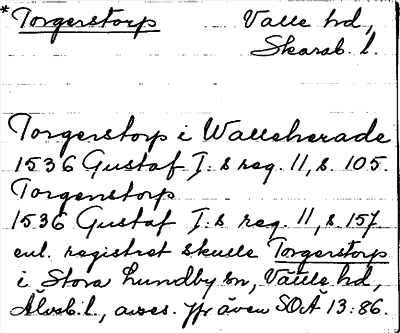 * Torgerstorp Valle hd,
Skarab. l.
Torgerstorp i Walleherade
1536 Gustaf I:s reg. 11, s. 105.
Torgenstorp
1536 Gustaf I:s reg. 11, s. 157
enl. registret skulle Torgerstorp
i Stora Lundby sn, Vättle hd,
Älvsb. l., avses. Jfr även SOÄ 13:86.